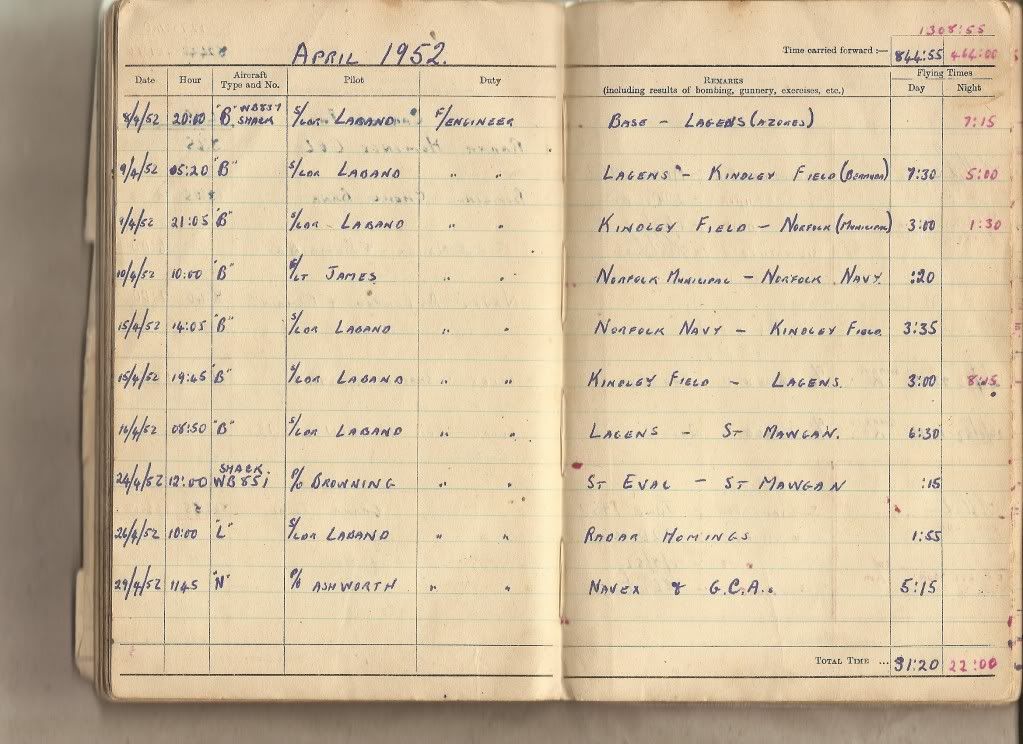 1308:55
APRIL 1952. Time carried forward :— 844:55 464:00
Date Hour Aircraft Type and No. Pilot Duty REMARKS (including results of bombing, gunnery, exercises, etc.) Flying Times Day Night
8/4/52 20:00 "B" WB837 SHACK S/LDR LABAND F/ENGINEER BASE - LAGENS (AZORES) 7:15
9/4/52 05:20 "B" S/LDR LABAND " " LAGENS - KINDLEY FIELD (BERMUDA) 7:30 5:00
9/4/52 21:05 "B" S/LDR LABAND " " KINDLEY FIELD - NORFOLK (MUNICIPAL) 3:00 1:30
10/4/52 10:00 "B" F/LT JAMES " " NORFOLK MUNICIPAL - NORFOLK NAVY. :20
15/4/52 14:05 "B" S/LDR LABAND " " NORFOLK NAVY - KINDLEY FIELD. 3:35
15/4/52 19:45 "B" S/LDR LABAND " " KINDLEY FIELD - LAGENS. 3:00 8:15
16/4/52 08:50 "B" S/LDR LABAND " " LAGENS - ST MAWGAN. 6:30
24/4/52 12:00 SHACK. WB851 P/O BROWNING " " ST EVAL - ST MAWGAN :15
26/4/52 10:00 "L" S/LDR LABAND " " RADAR HOMINGS 1:55
29/4/52 1145 "N" P/O ASHWORTH " " NAVEX & G.C.A.. 5:15
TOTAL TIME ... 31:20 22:00